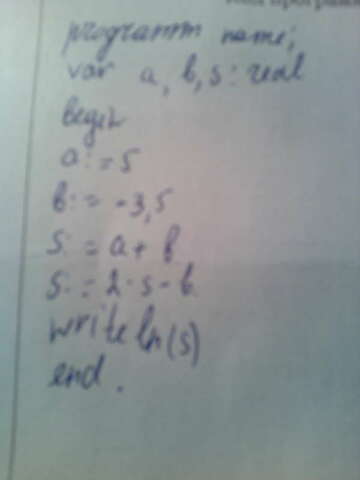 programm name;
var a, b, s: real
begin
a:=5
b:=-3,5
s:=a+b
s:=2·s-b
writeln(s)
end.